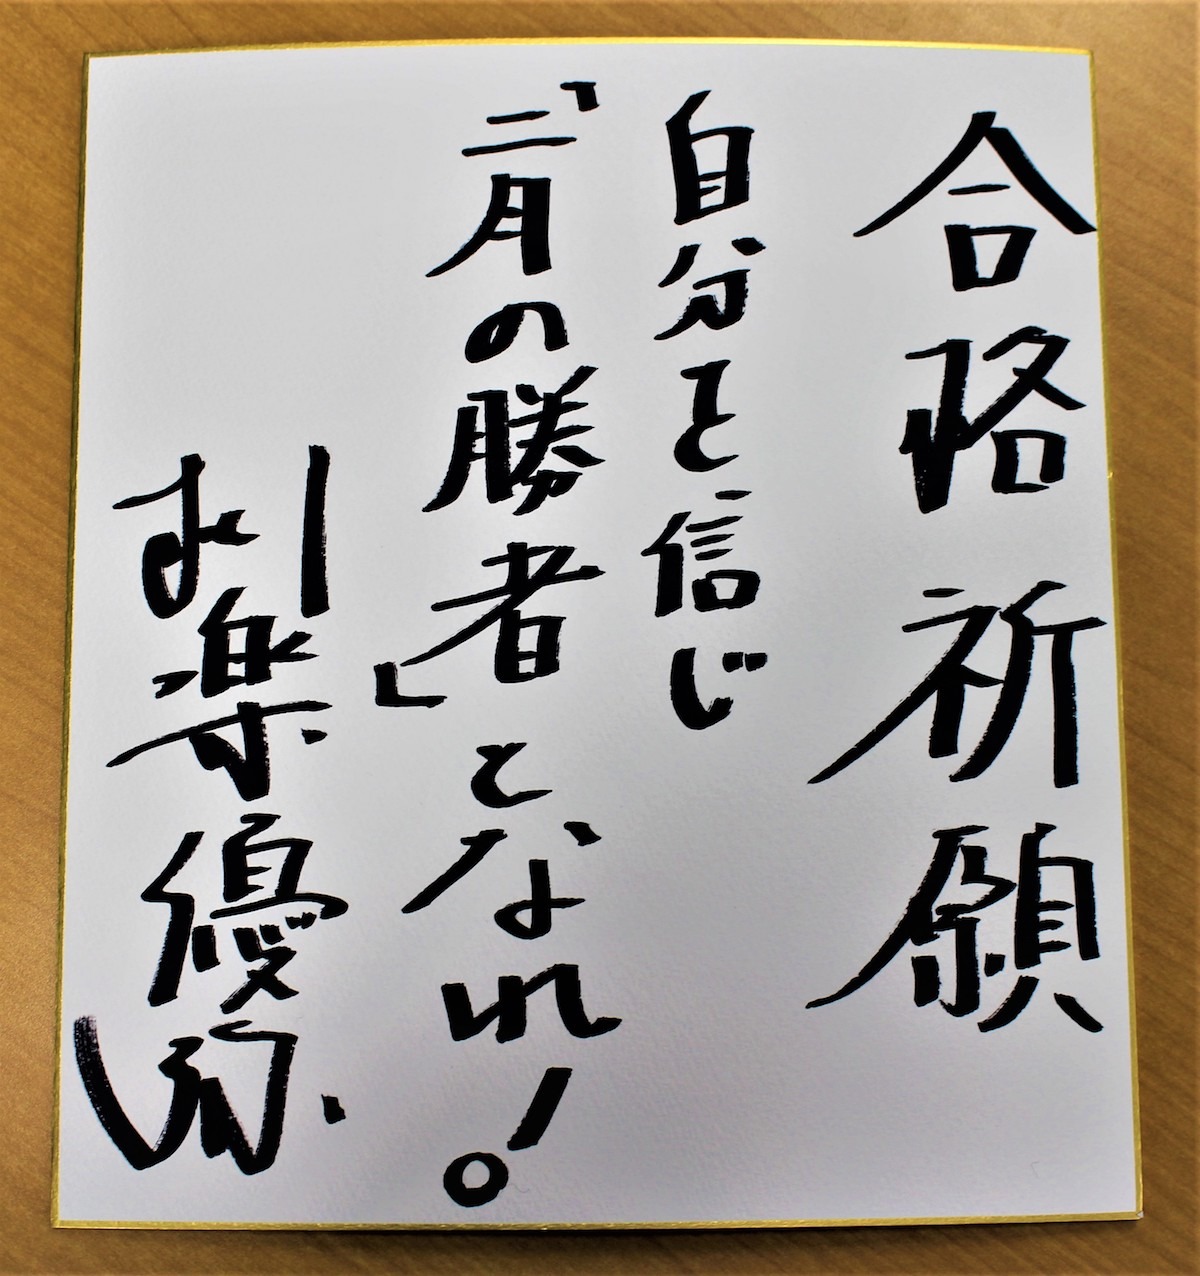 合格祈願
自分を信じ
「二月の勝者」となれ！
柳楽優弥